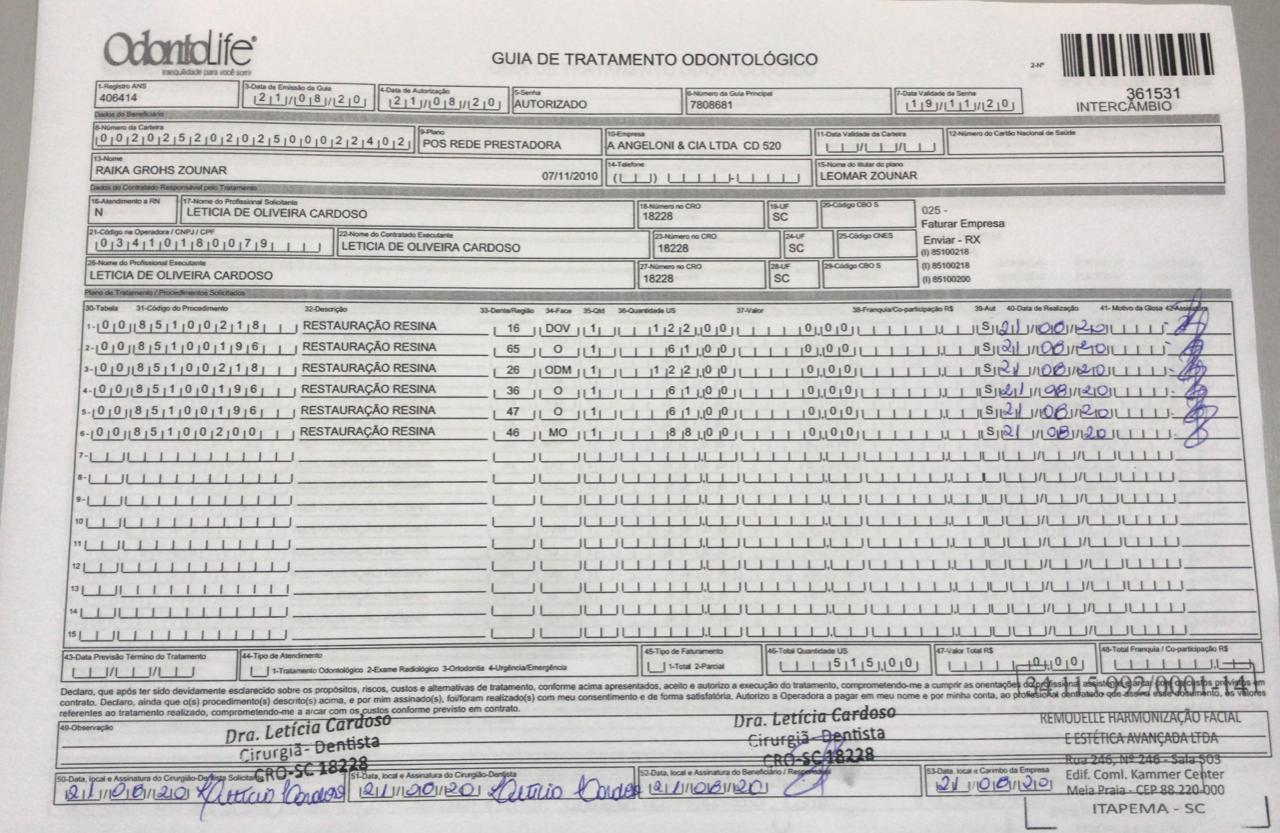 OdontoLife®
tranquilidade para você sorrir
GUIA DE TRATAMENTO ODONTOLÓGICO
2-Nº
361531
INTERCÂMBIO
1-Registro ANS
406414
3-Data de Emissão da Guia
21/08/20
4-Data de Autorização
21/08/20
5-Senha
AUTORIZADO
6-Número da Guia Principal
7808681
7-Data Validade da Senha
19/11/20
Dados do Beneficiário
8-Número da Carteira
00202520202500022402
9-Plano
POS REDE PRESTADORA
10-Empresa
A ANGELONI & CIA LTDA CD 520
11-Data Validade da Carteira
12-Número do Cartão Nacional de Saúde
13-Nome
RAIKA GROHS ZOUNAR 07/11/2010
14-Telefone
15-Nome do titular do plano
LEOMAR ZOUNAR
Dados do Contratado Responsável pelo Tratamento
16-Atendimento a RN
N
17-Nome do Profissional Solicitante
LETICIA DE OLIVEIRA CARDOSO
18-Número no CRO
18228
19-UF
SC
20-Código CBO S
025 -
Faturar Empresa
Enviar - RX
(I) 85100218
(I) 85100218
(I) 85100200
21-Código na Operadora / CNPJ / CPF
03410180079
22-Nome do Contratado Executante
LETICIA DE OLIVEIRA CARDOSO
23-Número no CRO
18228
24-UF
SC
25-Código CNES
26-Nome do Profissional Executante
LETICIA DE OLIVEIRA CARDOSO
27-Número no CRO
18228
28-UF
SC
29-Código CBO S
Plano de Tratamento / Procedimentos Solicitados
30-Tabela 31-Código do Procedimento 32-Descrição 33-Dente/Região 34-Face 35-Qtd 36-Quantidade US 37-Valor 38-Franquia/Co-participação R$ 39-Aut 40-Data de Realização 41- Motivo da Glosa 42-Assinatura
1- 00 85100218 RESTAURAÇÃO RESINA 16 DOV 1 122,00 0,00 S 21/08/20
2- 00 85100196 RESTAURAÇÃO RESINA 65 O 1 61,00 0,00 S 21/08/20
3- 00 85100218 RESTAURAÇÃO RESINA 26 ODM 1 122,00 0,00 S 21/08/20
4- 00 85100196 RESTAURAÇÃO RESINA 36 O 1 61,00 0,00 S 21/08/20
5- 00 85100196 RESTAURAÇÃO RESINA 47 O 1 61,00 0,00 S 21/08/20
6- 00 85100200 RESTAURAÇÃO RESINA 46 MO 1 88,00 0,00 S 21/08/20
7-
8-
9-
10
11
12
13
14
15
43-Data Previsão Término do Tratamento
44-Tipo de Atendimento
1-Tratamento Odontológico 2-Exame Radiológico 3-Ortodontia 4-Urgência/Emergência
45-Tipo de Faturamento
1-Total 2-Parcial
46-Total Quantidade US
515,00
47-Valor Total R$
0,00
48-Total Franquia / Co-participação R$
Declaro, que após ter sido devidamente esclarecido sobre os propósitos, riscos, custos e alternativas de tratamento, conforme acima apresentados, aceito e autorizo a execução do tratamento, comprometendo-me a cumprir as orientações do profissional
contrato. Declaro, ainda que o(s) procedimento(s) descrito(s) acima, e por mim assinado(s), foi/foram realizado(s) com meu consentimento e de forma satisfatória. Autorizo a Operadora a pagar em meu nome e por minha conta, ao profissional contratado
referentes ao tratamento realizado, comprometendo-me a arcar com os custos conforme previsto em contrato.
49-Observação
Dra. Letícia Cardoso
Cirurgiã-Dentista
CRO-SC 18228
Dra. Letícia Cardoso
Cirurgiã-Dentista
CRO-SC 18228
REMODELLE HARMONIZAÇÃO FACIAL
E ESTÉTICA AVANÇADA LTDA
Rua 246, Nº 246 - Sala 503
Edif. Coml. Kammer Center
Meia Praia - CEP 88.220-000
ITAPEMA - SC
50-Data, local e Assinatura do Cirurgião-Dentista Solicitante
21/08/20 Letícia Cardoso
51-Data, local e Assinatura do Cirurgião-Dentista
21/08/20 Letícia Cardoso
52-Data, local e Assinatura do Beneficiário / Responsável
21/08/20
53-Data, local e Carimbo da Empresa
21/08/20